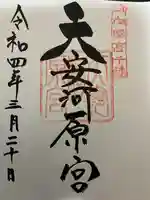 天安河原宮
令和四年三月二十日